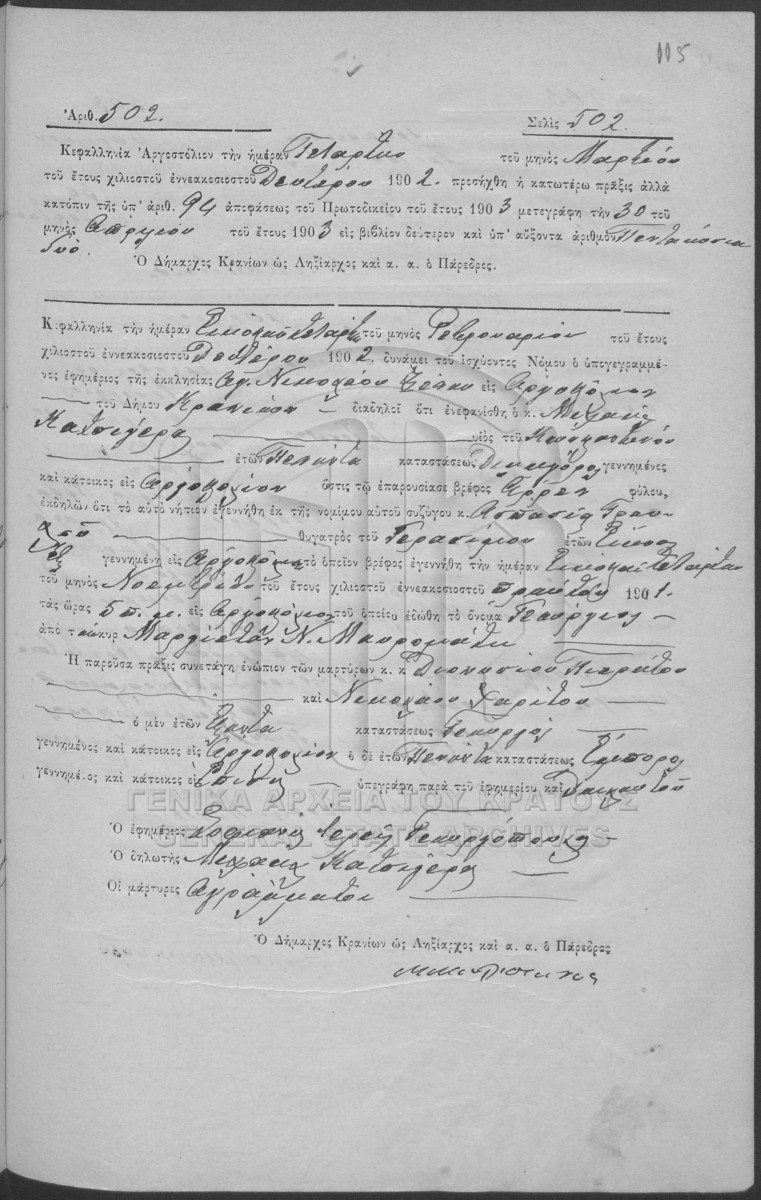 115
Ἀριθ. 502. Σελὶς 502.
Κεφαλληνία Ἀργοστόλιον τὴν ἡμέραν Τετάρτην τοῦ μηνὸς Μαρτίου
τοῦ ἔτους χιλιοστοῦ ἐννεακοσιοστοῦ Δευτέρου 1902. προσήχθη ἡ κατωτέρω πρᾶξις ἀλλὰ
κατόπιν τῆς ὑπ' ἀριθ. 94 ἀποφάσεως τοῦ Πρωτοδικείου τοῦ ἔτους 1903 μετεγράφη τὴν 30 τοῦ
μηνὸς Απριλίου τοῦ ἔτους 1903 εἰς βιβλίον δεύτερον καὶ ὑπ' αὔξοντα ἀριθμὸν Πεντακόσια
δυο.
Ὁ Δήμαρχος Κρανίων ὡς Ληξίαρχος καὶ α. α. ὁ Πάρεδρος.
Κεφαλληνία τὴν ἡμέραν Εικοστὴν τετάρτην τοῦ μηνὸς Φεβρουαρίου τοῦ ἔτους
χιλιοστοῦ ἐννεακοσιοστοῦ Δευτέρου 1902, δυνάμει τοῦ ἰσχύοντος Νόμου ὁ ὑπογεγραμμέ-
νος ἐφημέριος τῆς ἐκκλησίας Αγ. Νικολάου εἰς Αργοστόλιον
τοῦ Δήμου Κρανίων διαδηλοῖ ὅτι ἐνεφανίσθη ὁ κ. Μιχαὴλ
Κατσιγέρα υἱὸς τοῦ
ἐτῶν Πενήντα καταστάσεως Δικηγόρος γεννημένος
καὶ κάτοικος εἰς Αργοστόλιον ὅστις τῷ ἐπαρουσίασε βρέφος Άρρεν φύλου,
ἐκδηλῶν, ὅτι τὸ αὐτὸ νήπιον ἐγεννήθη ἐκ τῆς νομίμου αὐτοῦ συζύγου κ. Ασπασία
θυγατρὸς τοῦ Γερασίμου ἐτῶν Είκοσι
γεννημένη εἰς Αργοστόλιον τὸ ὁποῖον βρέφος ἐγεννήθη τὴν ἡμέραν Εικοστὴν Τετάρτην
τοῦ μηνὸς Νοεμβρίου τοῦ ἔτους χιλιοστοῦ ἐννεακοσιοστοῦ πρώτου 1901.
τὰς ὥρας 5 π. μ. εἰς Αργοστόλιον τοῦ ὁποίου ἐδόθη τὸ ὄνομα Γεώργιος
ἀπὸ Μαργιέταν Ν. Μαυρομάτη
Ἡ παροῦσα πρᾶξις συνετάγη ἐνώπιον τῶν μαρτύρων κ. κ. Διονυσίου
καὶ Νικολάου Χαρίτου
ὁ μὲν ἐτῶν Εξήντα καταστάσεως Γεωργός
γεννημένος καὶ κάτοικος εἰς Αργοστόλιον ὁ δὲ ἐτῶν Πενήντα καταστάσεως Έμπορος
γεννημένος καὶ κάτοικος εἰς ὑπεγράφη παρὰ τοῦ ἐφημερίου καὶ
ΓΕΝΙΚΑ ΑΡΧΕΙΑ ΤΟΥ ΚΡΑΤΟΥΣ
GENERAL STATE ARCHIVES
Ὁ ἐφημέριος Ιερεύς Γεωργόπουλος
Ὁ δηλωτὴς Μιχαὴλ Κατσιγέρα
Οἱ μάρτυρες Αγράμματοι
Ὁ Δήμαρχος Κρανίων ὡς Ληξίαρχος καὶ α. α. ὁ Πάρεδρος